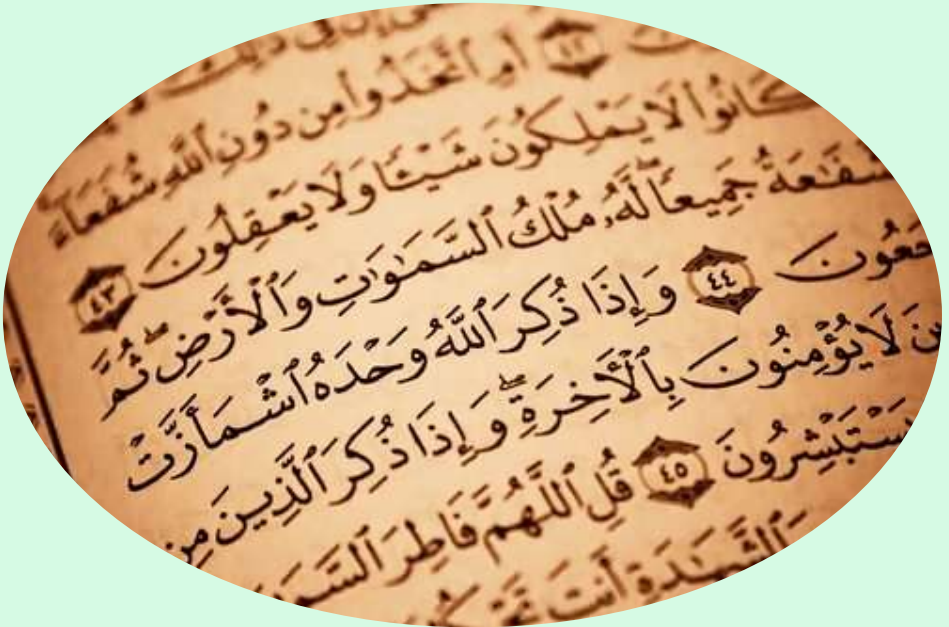 إِنَّ فِى ذَٰلِكَ
٤٢ أَمِ ٱتَّخَذُوا۟ مِن دُونِ ٱللَّهِ شُفَعَآءَ
كَانُوا۟ لَا يَمْلِكُونَ شَيْـًٔا وَلَا يَعْقِلُونَ ٤٣
شَّفَـٰعَةُ جَمِيعًا ۖ لَّهُۥ مُلْكُ ٱلسَّمَـٰوَٰتِ وَٱلْأَرْضِ ۖ ثُمَّ
جَعُونَ ٤٤ وَإِذَا ذُكِرَ ٱللَّهُ وَحْدَهُ ٱشْمَأَزَّتْ
ينَ لَا يُؤْمِنُونَ بِٱلْـَٔاخِرَةِ ۖ وَإِذَا ذُكِرَ ٱلَّذِينَ مِن
سْتَبْشِرُونَ ٤٥ قُلِ ٱللَّهُمَّ فَاطِرَ ٱلسَّمَـ
ٱلشَّهَـٰدَةِ أَنتَ تَحْكُمُ